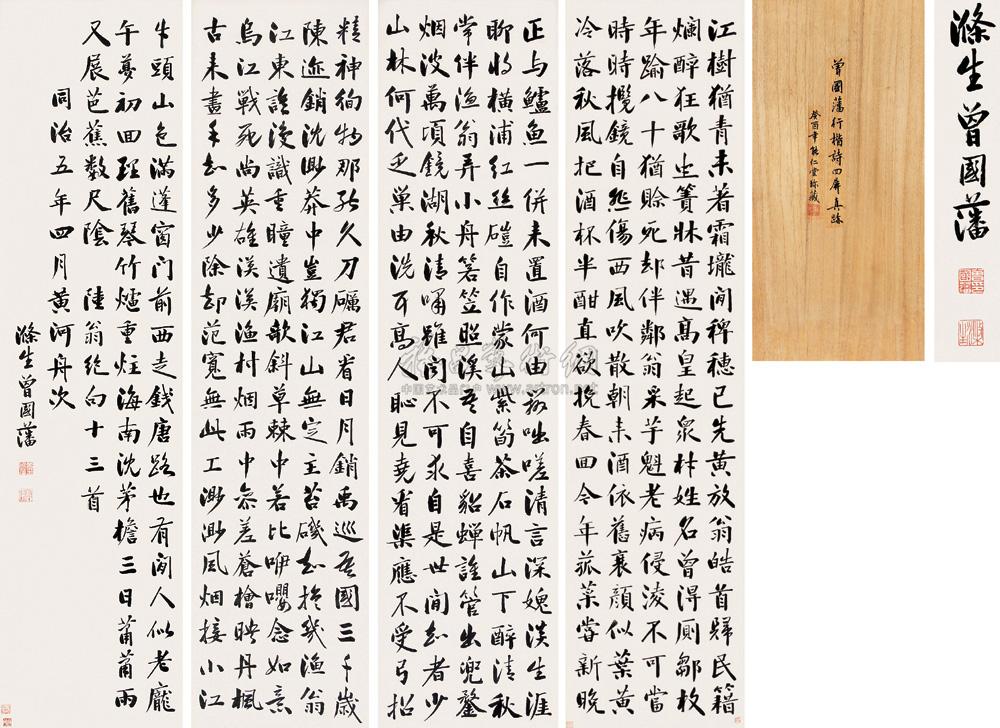 滌生曾國藩
曾國藩行楷詩四屏真跡
癸酉年能仁堂珍藏
江樹猶青未著霜壠間稗穗已先黃放翁皓首歸民籍
爛醉狂歌坐簀牀昔遇高皇起眾材姓名曾得廁鄒枚
年踰八十猶賒死却伴鄰翁采芋魁老病侵淩不可當
時時攬鏡自悲傷西風吹散朝来酒依舊衰顏似葉黃
冷落秋風把酒杯半酣直欲挽春回今年菰菜嘗新晚
正与鱸魚一併来置酒何由辦咄嗟清言深媿淡生涯
聊將橫浦紅絲磑自作蒙山紫筍茶石帆山下醉清秋
常伴漁翁弄小舟箬笠照溪吾自喜貂蟬誰管出兜鍪
烟波萬頃鏡湖秋清嘯雖聞不可求自是世間知者少
山林何代乏巢由洗耳高人恥見堯看渠應不受弓招
精神徇物那能久刀礪君看日月銷禹巡吾國三千歲
陳迹銷沈渺莽中豈獨江山無定主苔磯知換幾漁翁
江東誰復識重瞳遺廟欹斜草棘中若比咿嚶念如意
烏江戰死尚英雄漠漠漁村烟雨中參差蒼檜映丹楓
古来畫手知多少除却范寬無此工渺渺風烟接小江
牛頭山色滿蓬窗門前西走錢唐路也有閑人似老龐
午夢初回理舊琴竹爐重炷海南沈茅檐三日蕭蕭雨
又展芭蕉數尺陰 陸翁絕句十三首
同治五年四月黃河舟次
滌生曾國藩